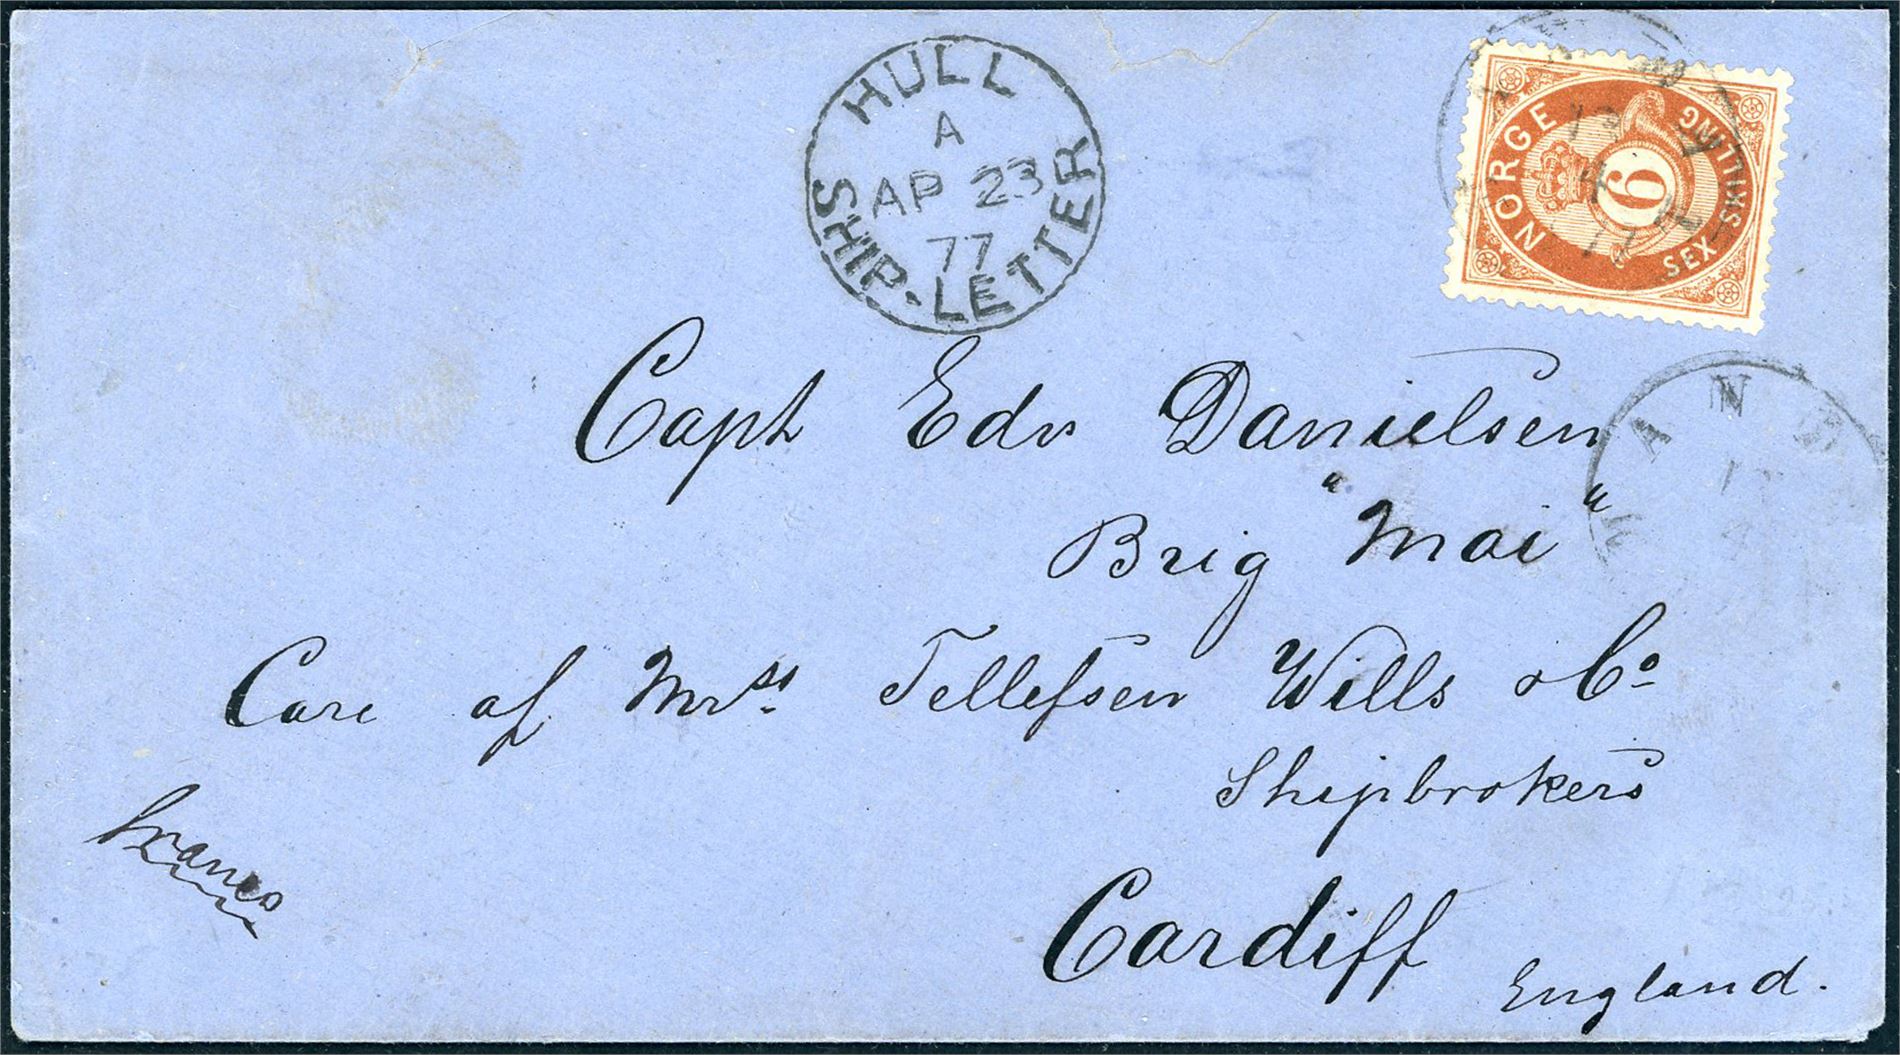 HULL
A
AP 23
77
SHIP-LETTER
NORGE
6
SEX SKILLING
Capt Edv Danielsen
Brig "Mai"
Care of Mrss Tellefsen Wills & Co
Shipbrokers
Franco
Cardiff
England.